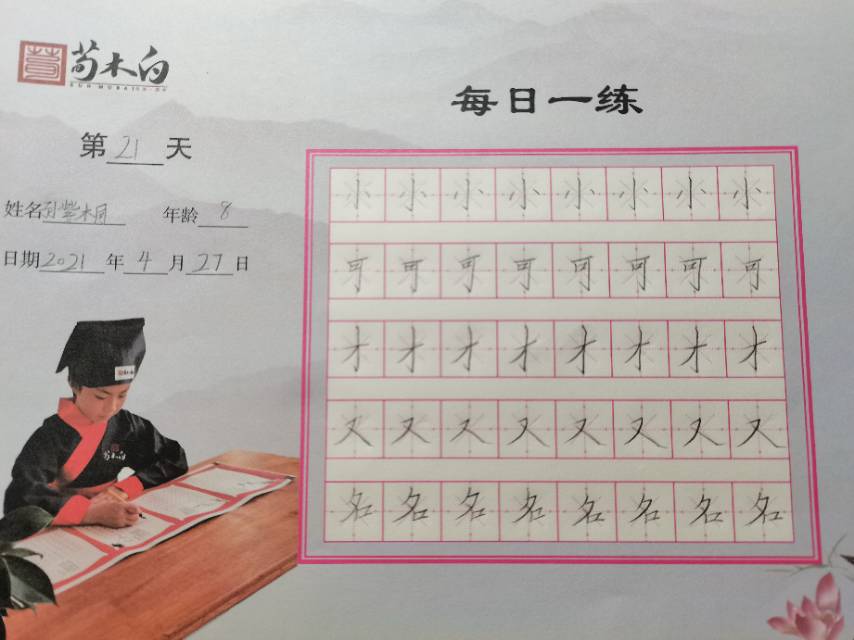 荀木白
SUN MUBAI
每日一练
第21天
姓名 年龄8
日期2021年4月27日
小小小小小小小小
可可可可可可可可
才才才才才才才才
又又又又又又又又
名名名名名名名名
荀木白